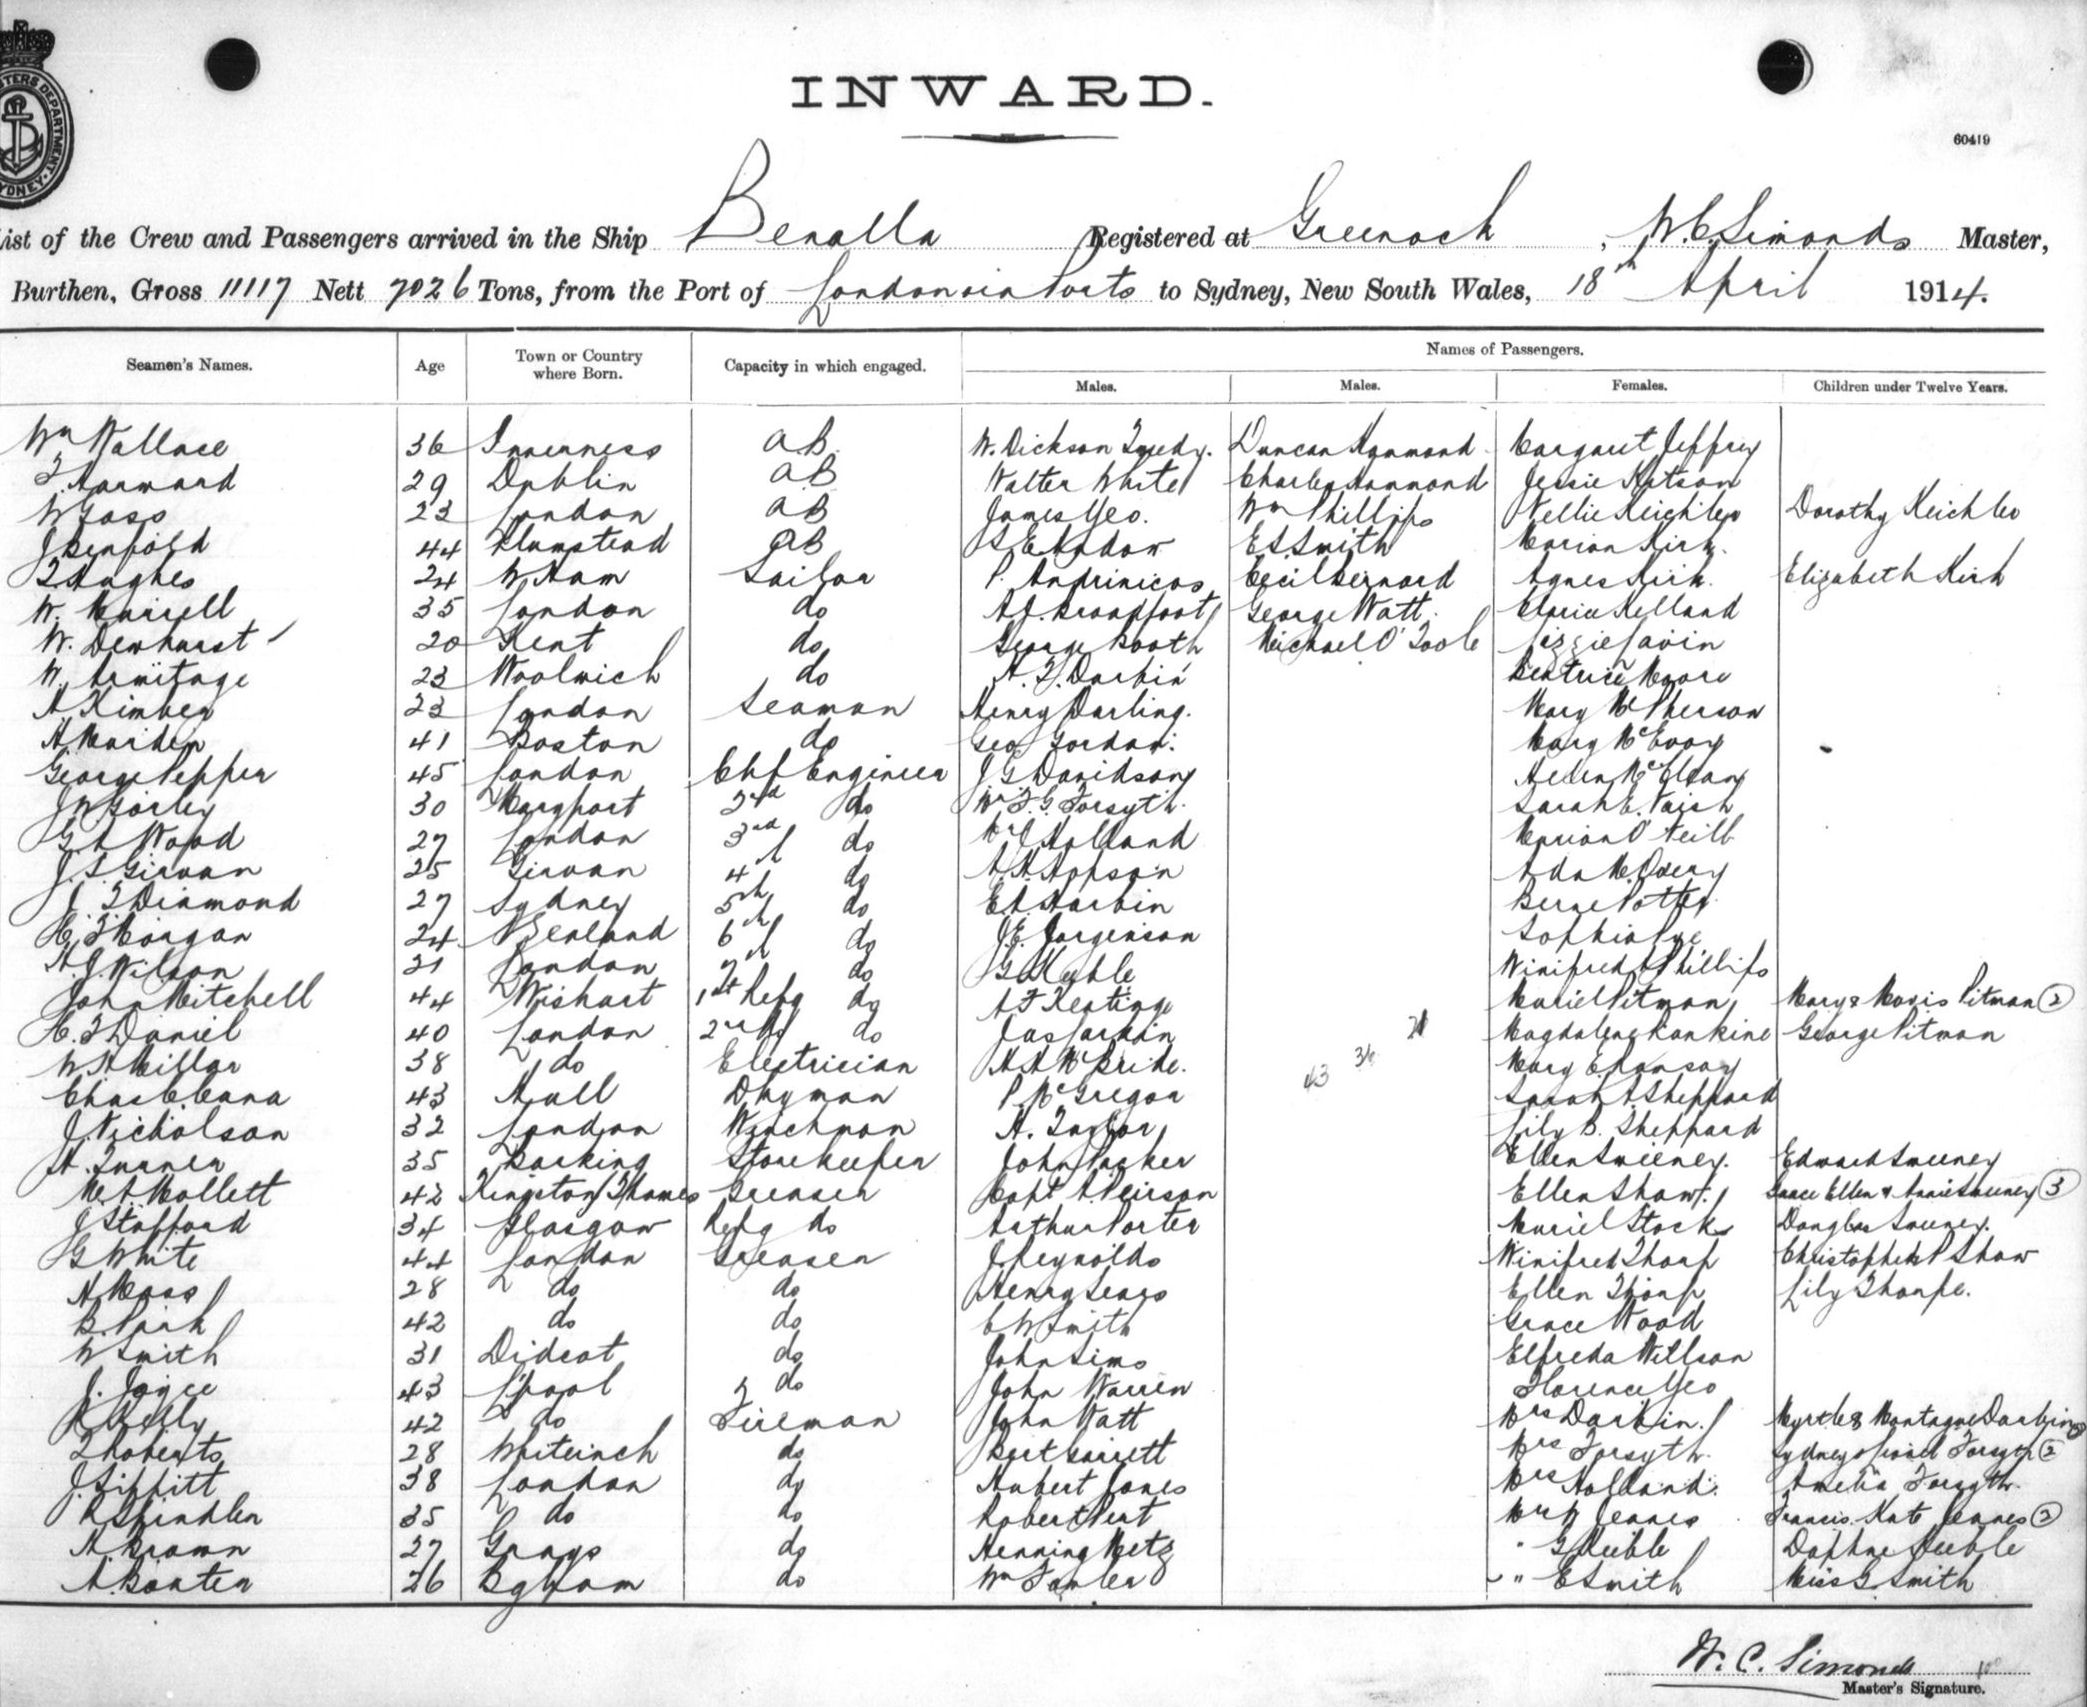 INWARD.
60419
List of the Crew and Passengers arrived in the Ship Benalla Registered at Greenock, W.C. Simonds Master,
Burthen, Gross 11117 Nett 7026 Tons, from the Port of London via Ports to Sydney, New South Wales, 18th April 1914.
Names of Passengers.
Seamen's Names. Age Town or Country where Born. Capacity in which engaged. Males. Males. Females. Children under Twelve Years.
Wm Wallace 36 Inverness AB W. Dickson Duncan Hammond Margaret Jeffrey
T. Harward 29 Dublin AB Walter White Charles Hammond Jessie Katson
W Goss 23 London AB James Yeo. Wm Phillips Nellie Keichler Dorothy Keichler
J Benfold 44 Plumstead AB E S Smith Marian Kirk.
T Hughes 24 W Ham Sailor P. Andrinicos Cecil Bernard Agnes Kirk. Elizabeth Kirk
W. Murrell 35 London do A J. Broadfoot George Watt. Clarice Kelland
W. Dewhurst 20 Kent do George Booth Michael O'Toole Lizzie Lavin
W. Armitage 23 Woolwich do A. T. Darbin Beatrice Moore
A Kimber 23 London Seaman Henry Darling. Mary McPherson
A. Marden 41 Boston do Geo Gordon. Mary McEvoy
George Pepper 45 London Chf Engineer J G Davidson Helen McElvay
J W Gorley 30 Maryport 2nd do Wm T. G. Forsyth. Sarah E. Naish
G A Wood 27 London 3rd do Holland Marian O'Neill
J. S. Girvan 25 Girvan 4th do A H Hopson Ada
J T Diamond 27 Sydney 5th do E A Harbin Potter
C. T Morgan 24 N Zealand 6th do J. E. Jorgenson Sophia Pye
A. J. Wilson 21 London 7th do G Keeble Winifred A Phillips
John Mitchell 44 Wishart 1st Refg do A F Keatinge Muriel Pitman Mary & Mavis Pitman 2
C. T Daniel 40 London 2nd do Jas Larkin 21 Magdalene Rankine George Pitman
W H Millar 38 do Electrician A A McBride. 43 36 Mary E Ramsay
Chas C Cana 43 Hull Dkyman P. McGregor Sarah A Sheppard
J. Nicholson 32 London Winchman A. Taylor Lily B. Sheppard
H. Turner 35 Barking Storekeeper John Packer Ellen Sweeney. Edward Sweeney
Mollett 42 Kingston Thames Greaser Capt A Peirson Ellen Shaw. Grace Ellen & Annie Sweeney 3
J Stafford 34 Glasgow Refg do Arthur Porter Muriel Stock Douglas Sweeney.
G White 44 London Greaser J. Reynolds Winifred Thorp Christopher P Shaw
A Moss 28 do do Henry Sears Ellen Thorp Lily Thorpe.
B. Park 42 do do C W Smith Grace Wood
W Smith 31 Didcot do John Sims Elfreda Willson
J. Joyce 43 L'pool do John Warren Florence Yeo
R Kelly 42 do Fireman John Watt Mrs Darbin. Myrtle & Montague Darbin
T Roberts 28 Whiteinch do Bert Garrett Mrs Forsyth. Sydney & Forsyth 2
J. Sippitt 38 London do Hubert Jones Mrs Holland. Amelia Forsyth.
R Spindler 35 do do Robert Pert Mrs W Jeanes Francis. Kate Jeanes 2
A. Brown 27 Grays do Henning Metz " G Keeble Daphne Keeble
A. Baxter 26 Egham do Wm Fowler " E Smith Miss G Smith
W. C. Simonds
Master's Signature.